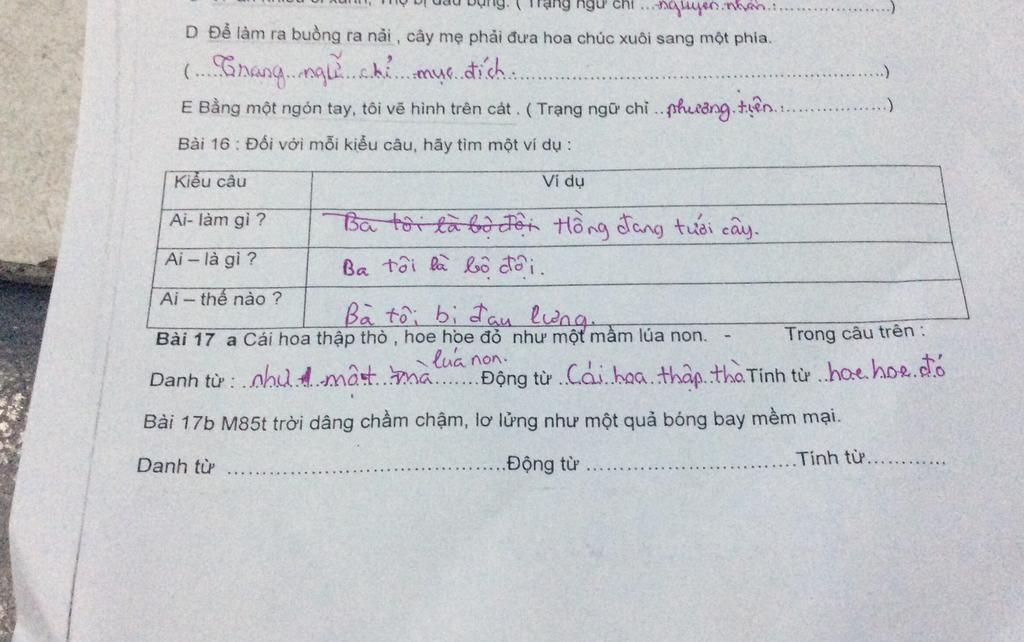 xanh, Thọ bị đau bụng. ( Trạng ngữ chỉ ...nguyên nhân.:....................)
D Để làm ra buồng ra nải , cây mẹ phải đưa hoa chúc xuôi sang một phía.
(.....Trạng ngữ chỉ mục đích.......................................................)
E Bằng một ngón tay, tôi vẽ hình trên cát . ( Trạng ngữ chỉ ..phương tiện.:..................)
Bài 16 : Đối với mỗi kiểu câu, hãy tìm một ví dụ :
Kiểu câu Ví dụ
Ai- làm gì ? Ba tôi là bộ đội Hồng đang tưới cây.
Ai – là gì ? Ba tôi là bộ đội.
Ai – thế nào ? Bà tôi bị đau lưng.
Bài 17 a Cái hoa thập thò , hoe hoe đỏ như một mầm lúa non. - Trong câu trên :
lúa non.
Danh từ : ..như một mà.......Động từ .Cái hoa thập thò Tính từ ..hoe hoe đỏ
Bài 17b M85t trời dâng chầm chậm, lơ lửng như một quả bóng bay mềm mại.
Danh từ ................................................Động từ ....................................Tính từ.............